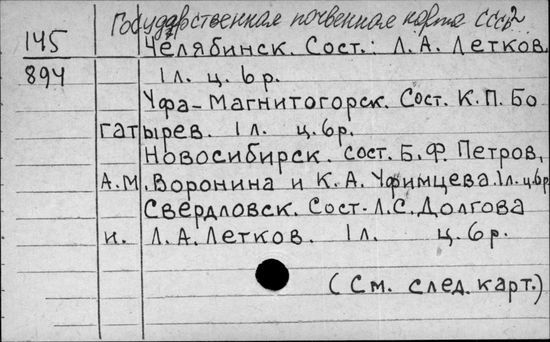 Государственная почвенная карта СССР 2
145 Челябинск. Сост.: Л.А. Летков.
894 1 л. ц. 6 р.
Уфа-Магнитогорск. Сост. К.П. Бо
гатырев. 1 л. ц. 6 р.
Новосибирск. сост. Б.Ф. Петров,
А.М. Воронина и К.А. Уфимцева. 1 л. ц. 6 р
Свердловск. Сост. Л.С. Долгова
и. Л.А. Летков. 1 л. ц. 6 р.
(См. след. карт.)